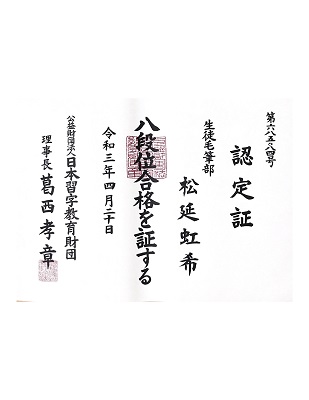 第六八五〇四号
認定証
生徒毛筆部
松延虹希
八段位合格を証する
令和三年四月二十日
公益財団法人日本習字教育財団
理事長 葛西孝章